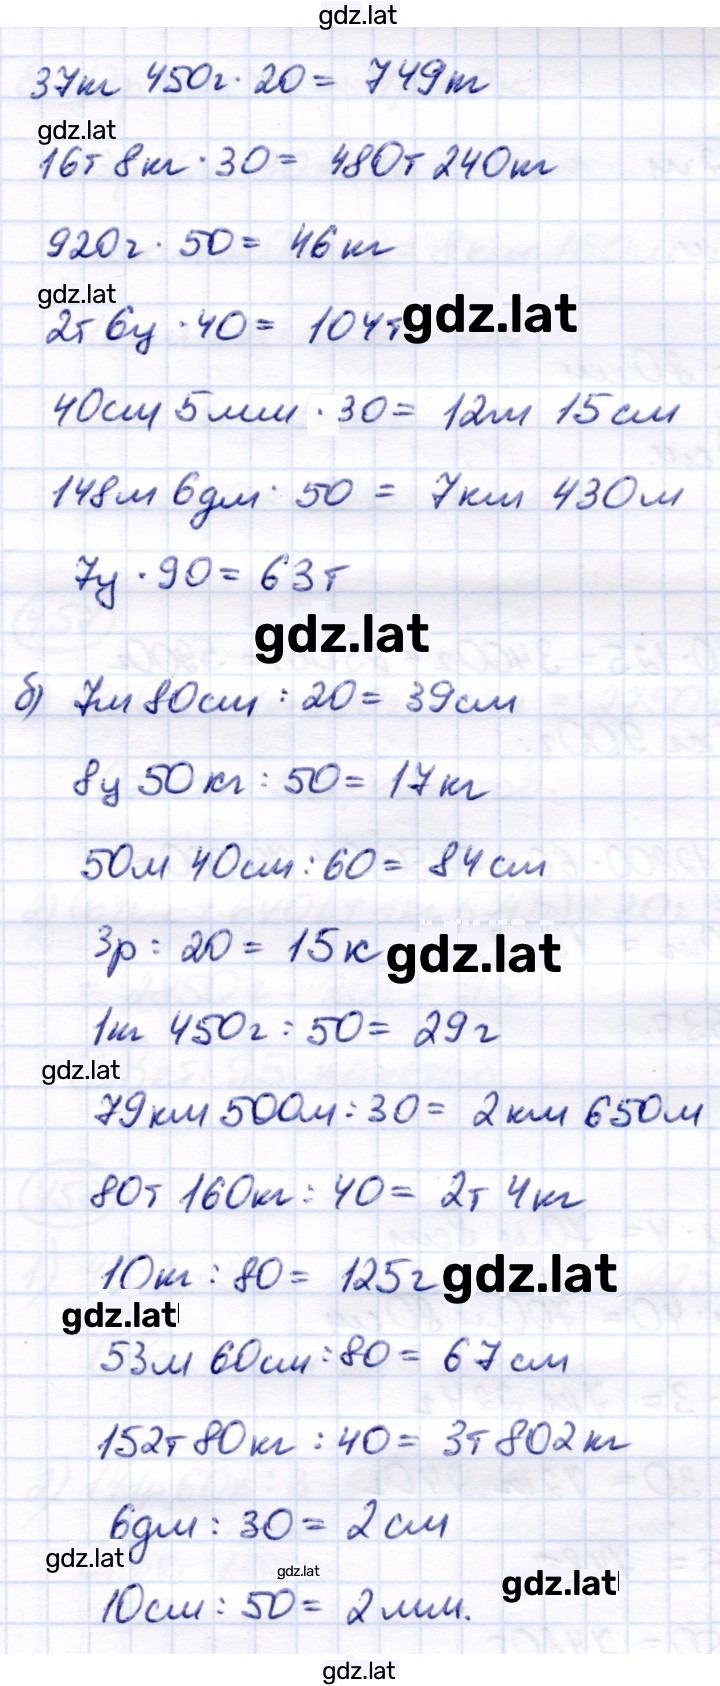 gdz.lat
37кг 450г · 20 = 749кг
gdz.lat
16т 8кг · 30 = 480т 240кг
920г · 50 = 46кг
gdz.lat
2т 6ц · 40 = 104т
gdz.lat
40см 5мм · 30 = 12м 15см
148м 6дм · 50 = 7км 430м
7ц · 90 = 63т
gdz.lat
б) 7м 80см : 20 = 39см
8ц 50кг : 50 = 17кг
50м 40см : 60 = 84см
3р : 20 = 15к
gdz.lat
1кг 450г : 50 = 29г
gdz.lat
79км 500м : 30 = 2км 650м
80т 160кг : 40 = 2т 4кг
10кг : 80 = 125г
gdz.lat
gdz.lat
53м 60см : 80 = 67см
152т 80кг : 40 = 3т 802кг
6дм : 30 = 2см
gdz.lat
gdz.lat
gdz.lat
10см : 50 = 2мм.
gdz.lat